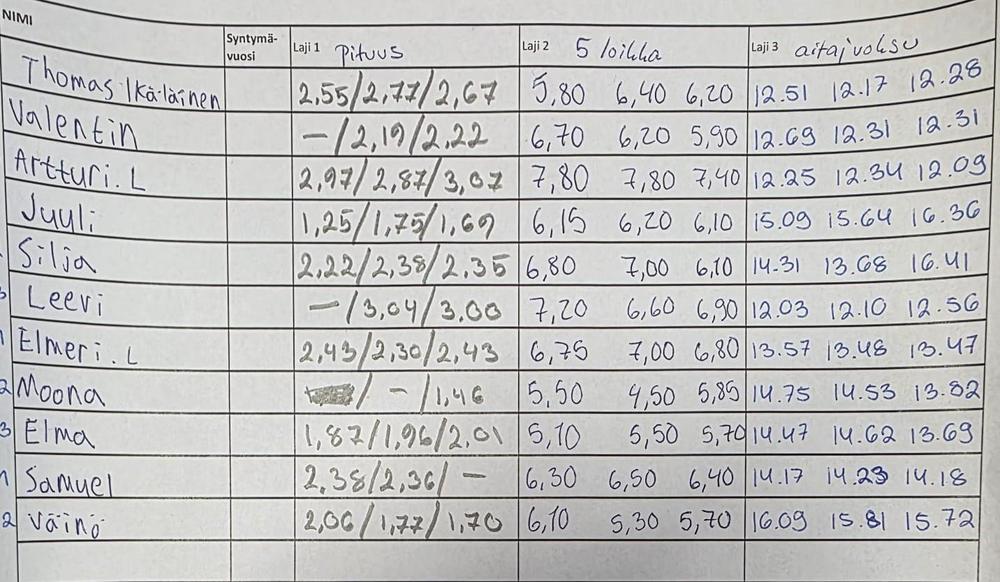 NIMI
Syntymä-vuosi Laji 1 pituus Laji 2 5 loikka Laji 3 aitajuoksu
Thomas Ikäläinen 2,55/2,77/2,67 5,80 6,40 6,20 12.51 12.17 12.28
Valentin —/2,19/2,22 6,70 6,20 5,90 12.69 12.31 12.31
Artturi.L 2,97/2,87/3,07 7,80 7,80 7,40 12.25 12.34 12.09
Juuli 1,25/1,75/1,69 6,15 6,20 6,10 15.09 15.64 16.36
Silja 2,22/2,38/2,35 6,80 7,00 6,10 14.31 13.68 16.41
3 Leevi —/3,04/3,00 7,20 6,60 6,90 12.03 12.10 12.56
1 Elmeri.L 2,43/2,30/2,43 6,75 7,00 6,80 13.57 13.48 13.47
2 Moona /—/1,46 5,50 4,50 5,85 14.75 14.53 13.82
3 Elma 1,87/1,96/2,01 5,10 5,50 5,70 14.47 14.62 13.69
1 Samuel 2,38/2,36/— 6,30 6,50 6,40 14.17 14.23 14.18
2 Väinö 2,06/1,77/1,70 6,10 5,30 5,70 16.09 15.81 15.72